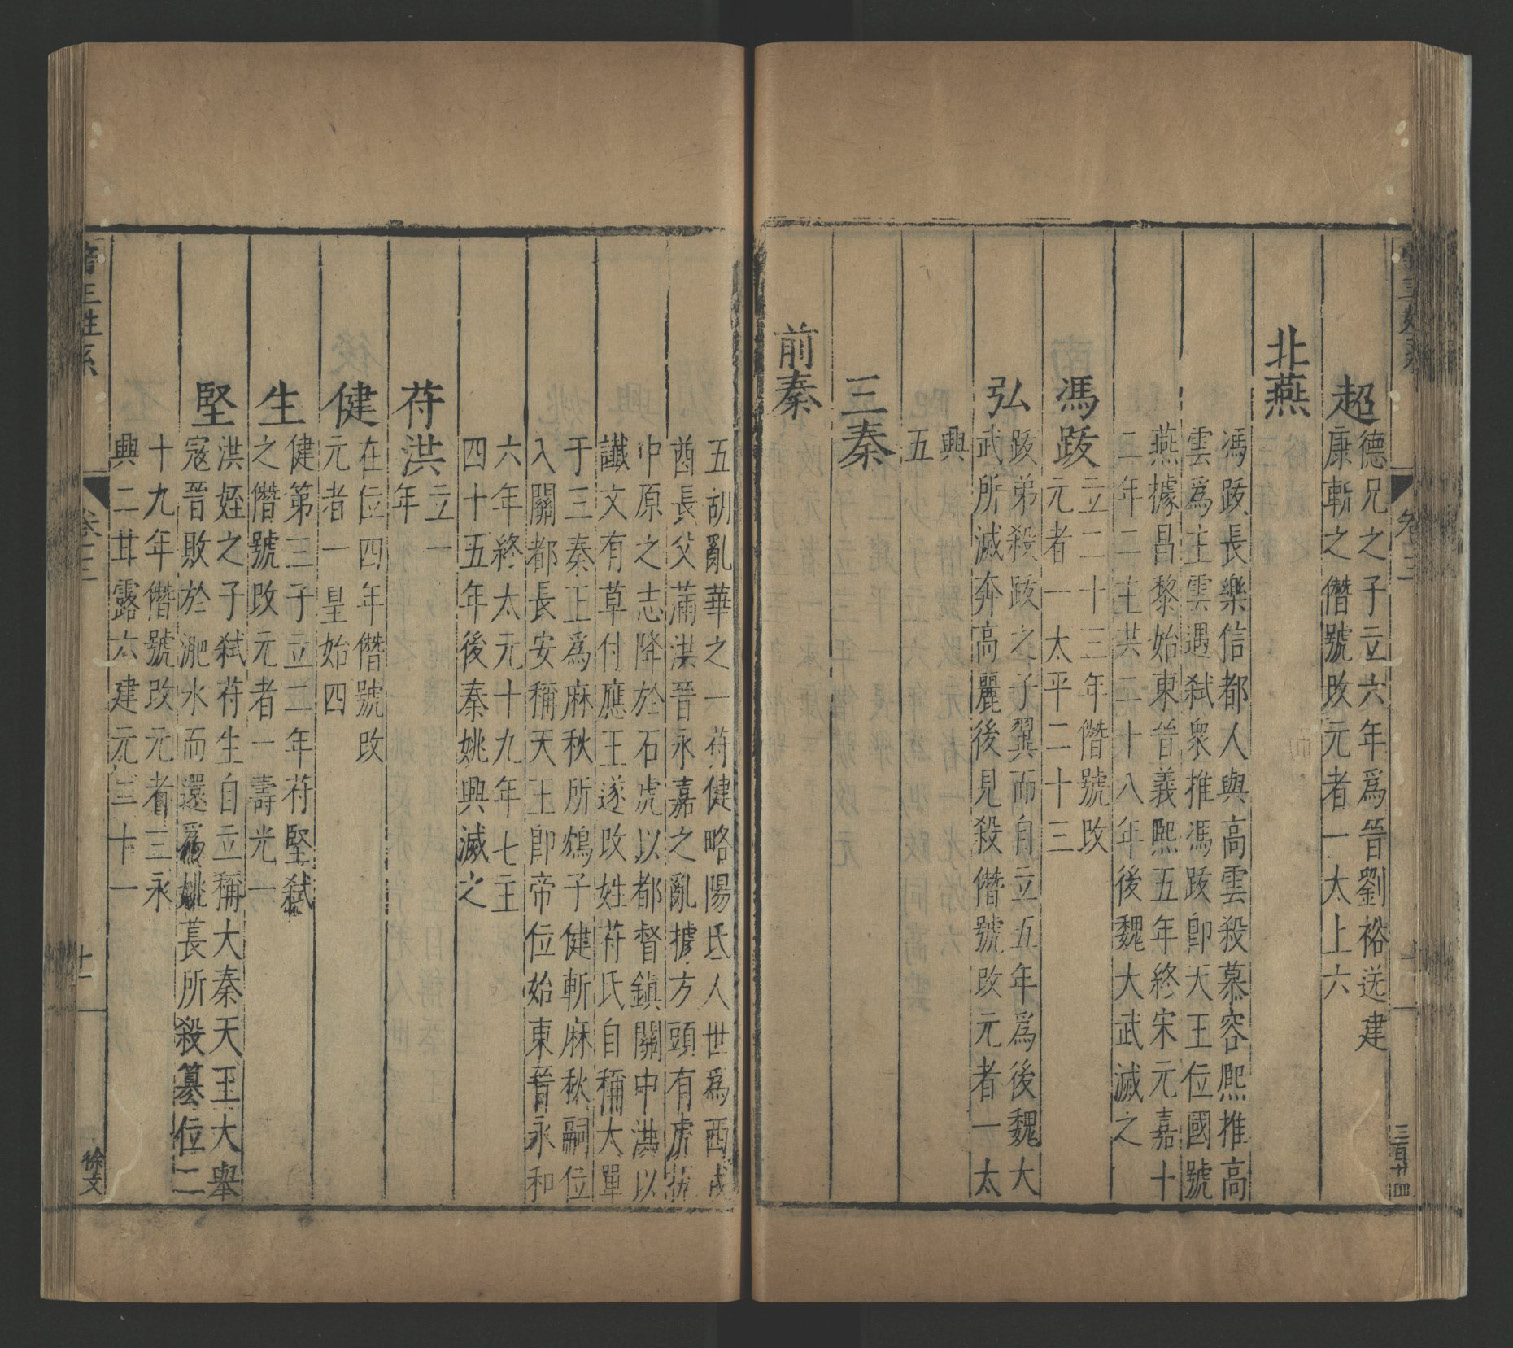 超
德兄之子立六年爲晉劉裕送建
康斬之僭號改元者一太上六
北燕
馮跋長樂信都人與高雲殺慕容熙推高
雲爲主雲遇弒衆推馮跋卽天王位國號
燕據昌黎始東晉義熙五年終宋元嘉十
二年二主共二十八年後魏大武滅之
馮跋
立二十三年僭號改
元者一太平二十三
弘
跋弟殺跋之子翼而自立五年爲後魏大
武所滅奔高麗後見殺僭號改元者一太
興
五
三秦
前秦
五胡亂華之一苻健略陽氐人世爲西戎
酋長父蒲洪晉永嘉之亂據方頭有虎視
中原之志降於石虎以都督鎮關中洪以
讖文有草付應王遂改姓苻氏自稱大單
于三秦王爲麻秋所鴆子健斬麻秋嗣位
入關都長安稱天王卽帝位始東晉永和
六年終太元十九年七主
四十五年後秦姚興滅之
苻洪
立一
年
健
在位四年僭號改
元者一皇始四
生
健第三子立二年苻堅弒
之僭號改元者一壽光一
堅
洪姪之子弒苻生自立稱大秦天王大舉
寇晉敗於淝水而還爲姚萇所殺篡位二
十九年僭號改元者三永
興二甘露六建元三十一
帝王姓系
卷三
十一
徐文